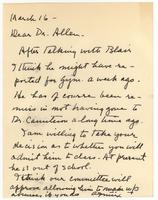 March 16 -
Dear Dr. Allen.
After Talking with Blair
I think he might have re-
ported for Gym. a week ago.
He has of course been re-
miss in not having gone to
Dr. Carnelson a long time ago.
I am willing to take your
decision as to whether you will
admit him to class. At present
he is out of school.
I think our committee will
approve allowing him to make up
absences if you do